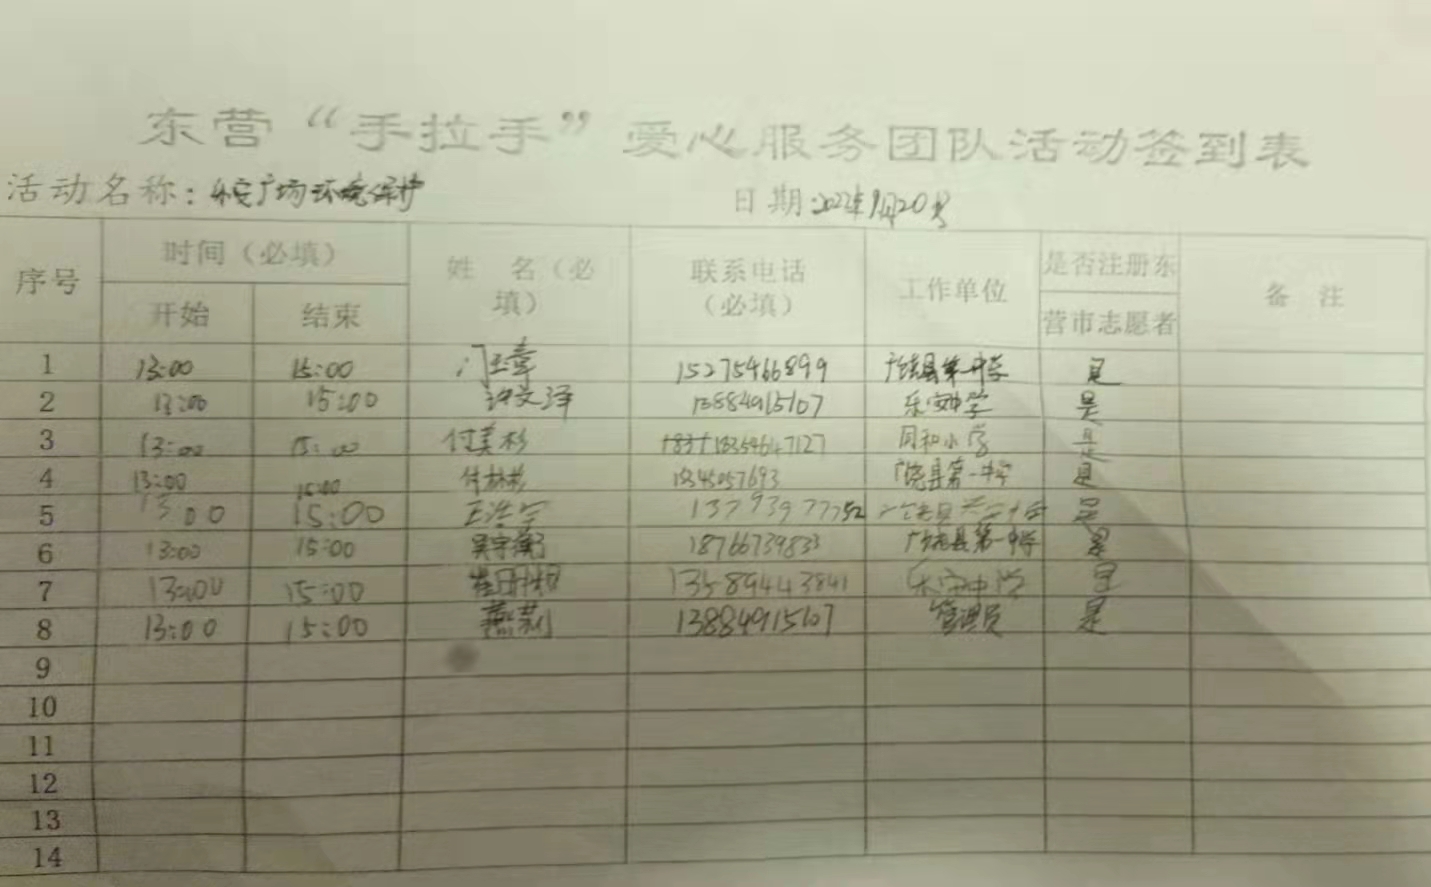 东营“手拉手”爱心服务团队活动签到表
活动名称：乐安广场环境保护 日期：2022年9月20号
序号 时间（必填） 姓 名（必填） 联系电话（必填） 工作单位 是否注册东营市志愿者 备 注
开始 结束
1 13:00 15:00 门玉章 15275466899 广饶县第一中学 是
2 13:00 15:00 许文泽 13884915107 乐安中学 是
3 13:00 15:00 付美杉 18354647127 同和小学 是
4 13:00 15:00 广饶县第一中学 是
5 13:00 15:00 王浩宇 13793977752 是
6 13:00 15:00 吴宇衡 18766739833 广饶县第一中学 是
7 13:00 15:00 13589443841 乐安中学 是
8 13:00 15:00 燕莉 13884915107 管理员 是
9
10
11
12
13
14